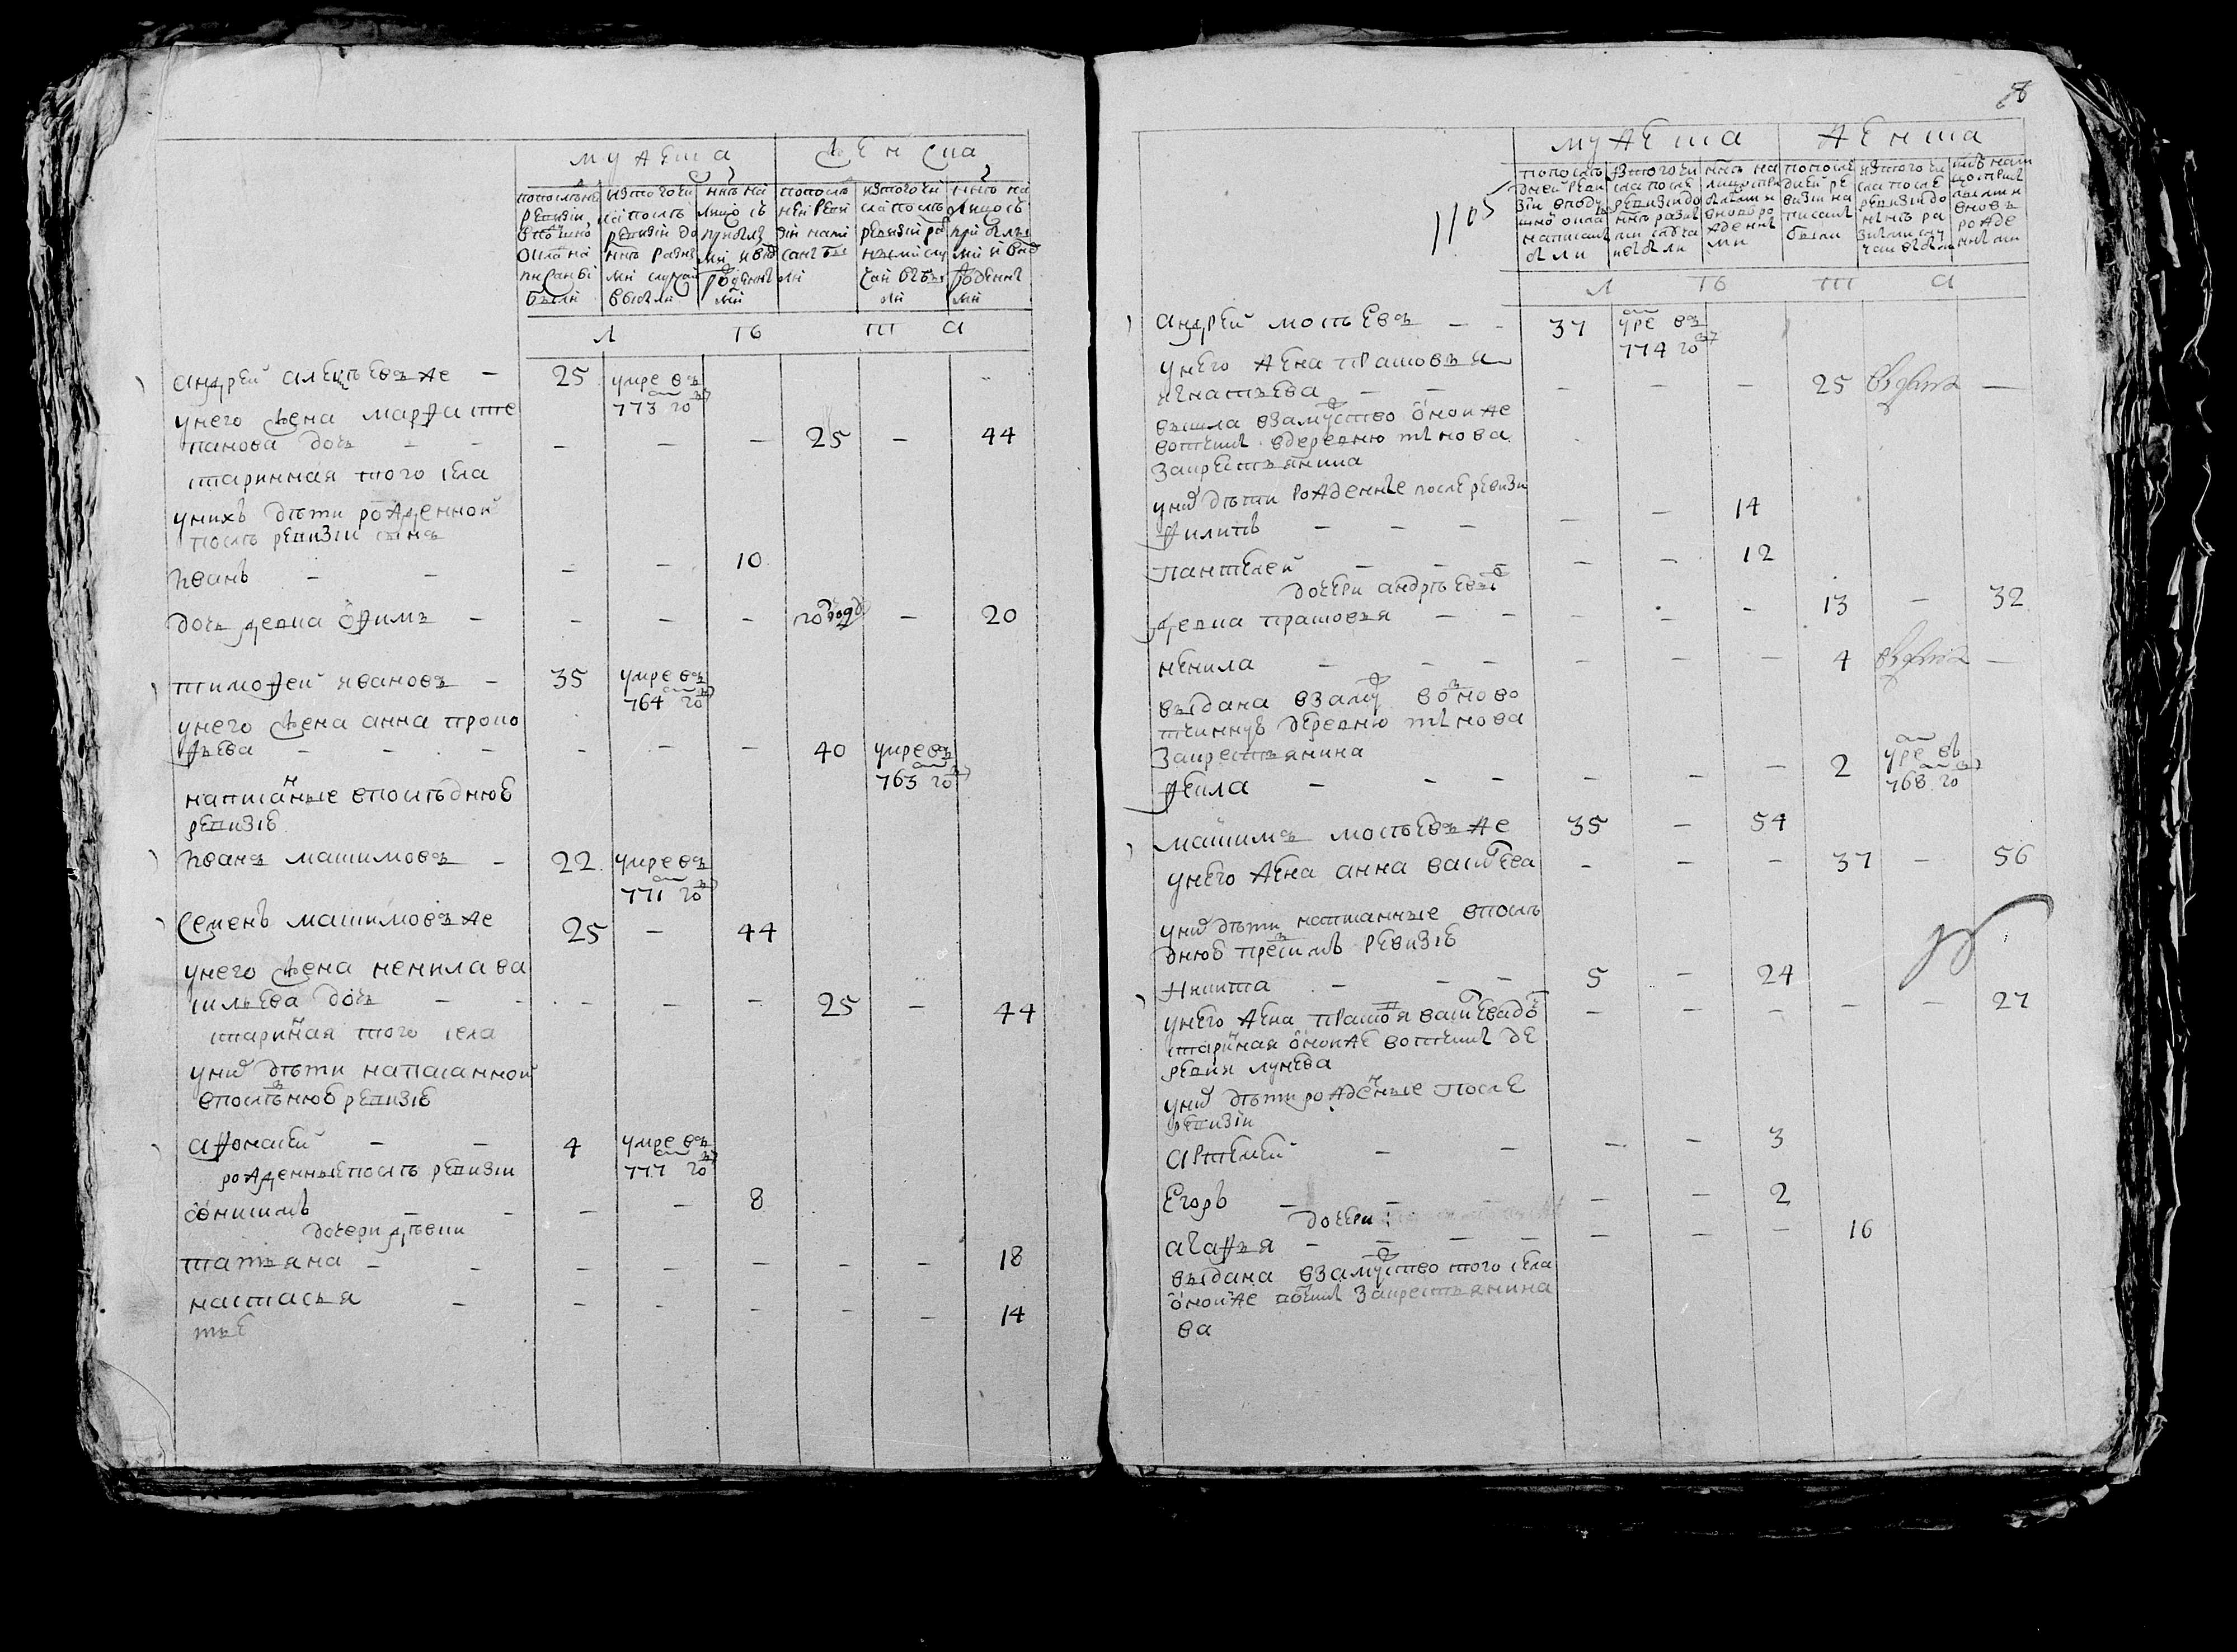 мужеска
женска
по последней ревизии в подушной оклад написаны были
из того числа после ревизии до ныне разными случаи выбыли
ныне на лицо с прибылыми и вновь рожденными
по последней ревизии написаны были
из того числа после ревизии разными случаи выбыли
ныне на лицо с прибылыми и вновь рожденными
Л Ѣ Т А
андрей алексѣевъ же — 25 умре въ
773 году
у него жена марфа сте
панова дочь — — — — — 25 — 44
старинная того села
у нихъ дѣти рожденной
послѣ ревизіи сынъ
Іванъ — — — — 10
дочь девка офимья — — — — — — 20
тимофей Івановъ — 35 умре въ
764 году
у него жена анна проко
фьева — — — — — — 40 умре въ
763 году
написанные в последнюю
ревизію
Іванъ максимовъ — 22 умре въ
771 году
Семенъ максимовъ же 25 — 44
у него жена ненила ва
сильева дочь — — — — — 25 — 44
старинная того села
у них дѣти написанной
в последнюю ревизію
афонасей — — 4 умре въ
777 году
рожденные послѣ ревизіи
онисимъ — — — — 8
дочери девки
татьяна — — — — — — — 18
настасья — — — — — — 14
1105
мужеска
женска
по последней ревизии в подушной оклад написаны были
из того числа после ревизии до ныне разными случаи выбыли
ныне на лицо с прибылыми и вновь рожденными
по последней ревизии написаны были
из того числа после ревизии до ныне разными случаи выбыли
Л Ѣ Т А
андрей мосѣевъ — — 37 умре въ
774 году
у него жена прасковья
игнатьева — — — — — 25 выдана —
вышла в замуство оной же
вотчины в деревню
за крестьянина
у них дѣти рожденные после ревизи
филипъ — — — — — 14
пантелей — — — — 12
дочери андрѣевы
девка прасковья — — — — — 13 — 32
ненила — — — — — — 4 выдана —
выдана в замуж в оной во
тчины в деревню
за крестьянина
фекла — — — — — — 2 умре въ
768 году
максимъ мосѣевъ же 35 — 54
у него жена анна васильева — — — 37 — 56
у них дѣти написанные в послѣ
днюю пред симъ ревизію
никита — — — 5 — 24
у него жена прасковья васильева до — — — — — 27
старинная оной же вотчины де
ревни лунева
у них дѣти рожденные после
ревизіи
артемей — — — — 3
Егоръ — — — — — 2
дочери
агафья — — — — — — — 16
выдана в замуство того села
оной же вотчины за крестьянина